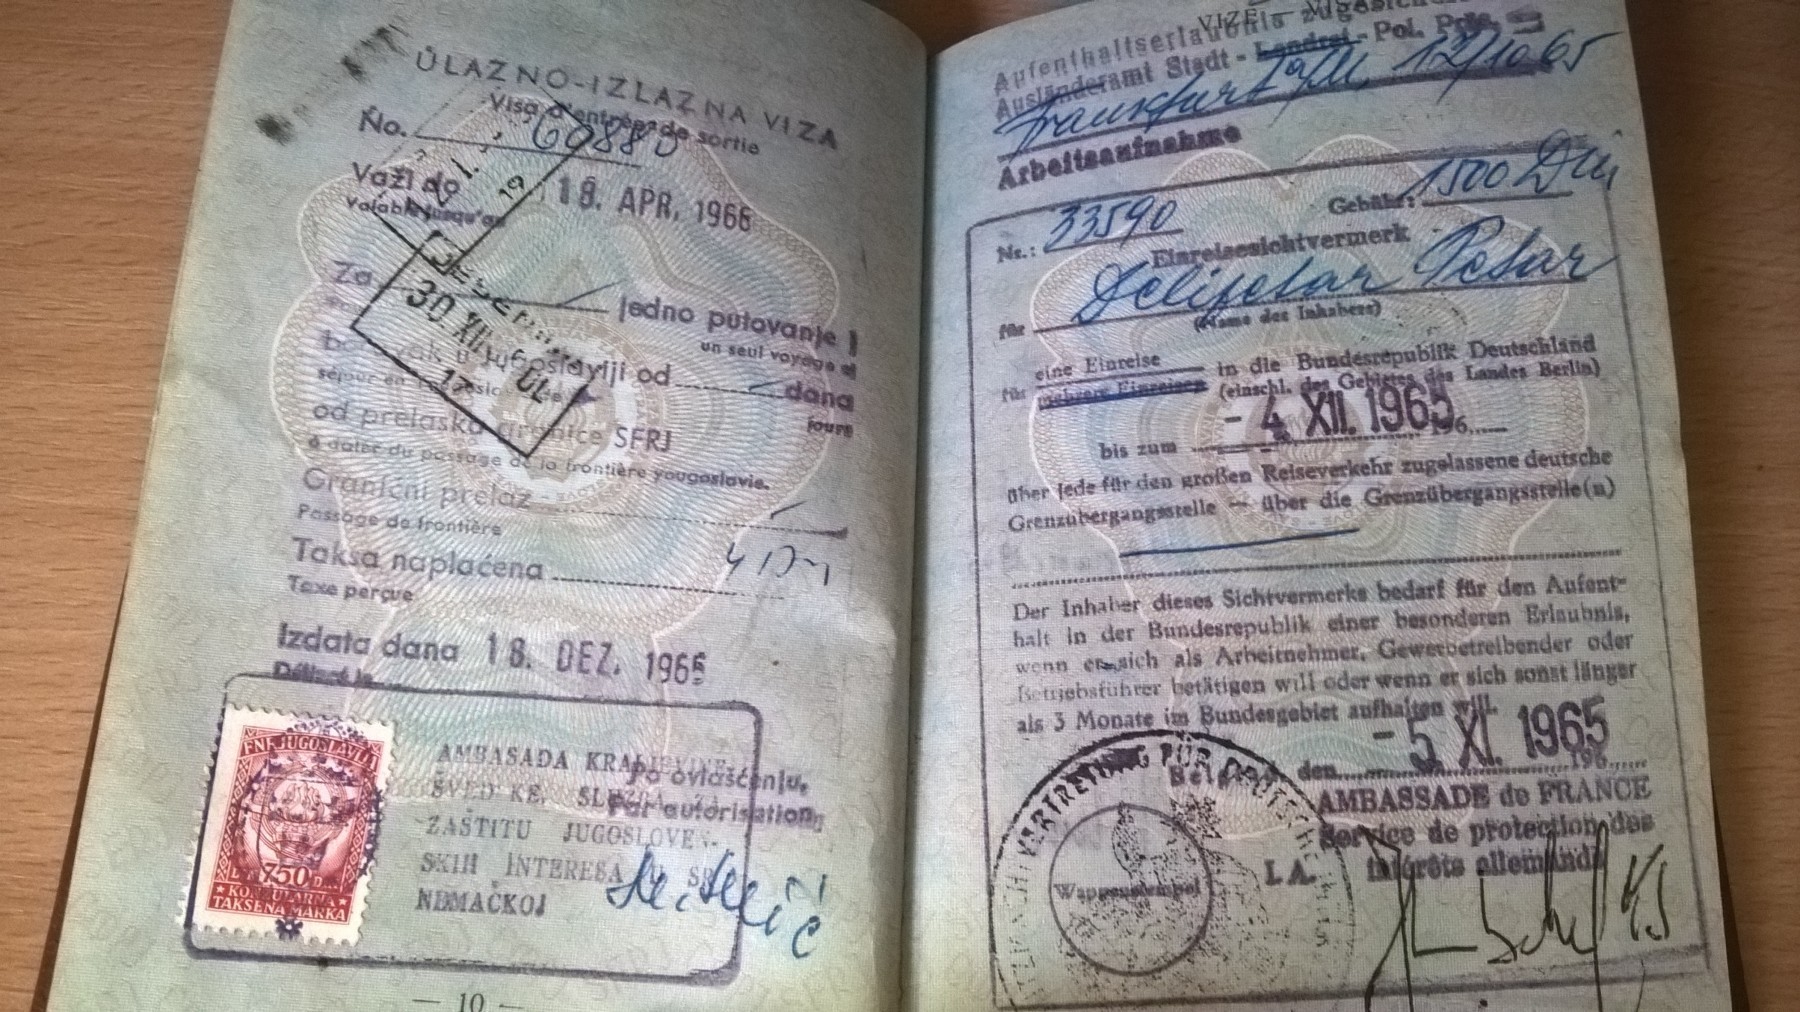 ULAZNO-IZLAZNA VIZA
Visa d'entrée de sortie
No.
Važi do 18. APR. 1966
Valable jusqu'au
Za jedno putovanje i
un seul voyage et
30. XII.
Jugoslaviji od dana
séjour en jours
UL
od prelaska granice SFRJ
à dater du passage de la frontière yougoslavie.
Granični prelaz
Passage de frontière
Taksa naplaćena 4 Dm
Taxe perçue
Izdata dana 18. DEZ. 1965
Délivré le
FNR JUGOSLAVIJA
750 D
KONZULARNA
TAKSENA MARKA
AMBASADA KRALJEVINE
Po ovlašćenju,
ŠVEDSKE, SLUŽBA
Par autorisation,
ZAŠTITU JUGOSLOVEN-
SKIH INTERESA U SR
NEMAČKOJ
— 10 —
Aufenthaltserlaubnis
Ausländeramt Stadt - Landrat - Pol. Präs.
Frankfurt a/M. 12/10 65
Arbeitsaufnahme
Nr.: 33590 Gebühr: 1500 Din
Einreisesichtvermerk
für Delijetar Petar
(Name des Inhabers)
für eine Einreise in die Bundesrepublik Deutschland
mehrere Einreisen (einschl. des Gebietes des Landes Berlin)
bis zum - 4. XII. 1965 196
über jede für den großen Reiseverkehr zugelassene deutsche
Grenzübergangsstelle — über die Grenzübergangsstelle(n)
Der Inhaber dieses Sichtvermerks bedarf für den Aufent-
halt in der Bundesrepublik einer besonderen Erlaubnis,
wenn er sich als Arbeitnehmer, Gewerbetreibender oder
Betriebsführer betätigen will oder wenn er sich sonst länger
als 3 Monate im Bundesgebiet aufhalten will.
den - 5. XI. 1965 196
AMBASSADE de FRANCE
Service de protection des
intérêts allemands
I.A.
VERTRETUNG FÜR DEUTSCHE
Wappenstempel